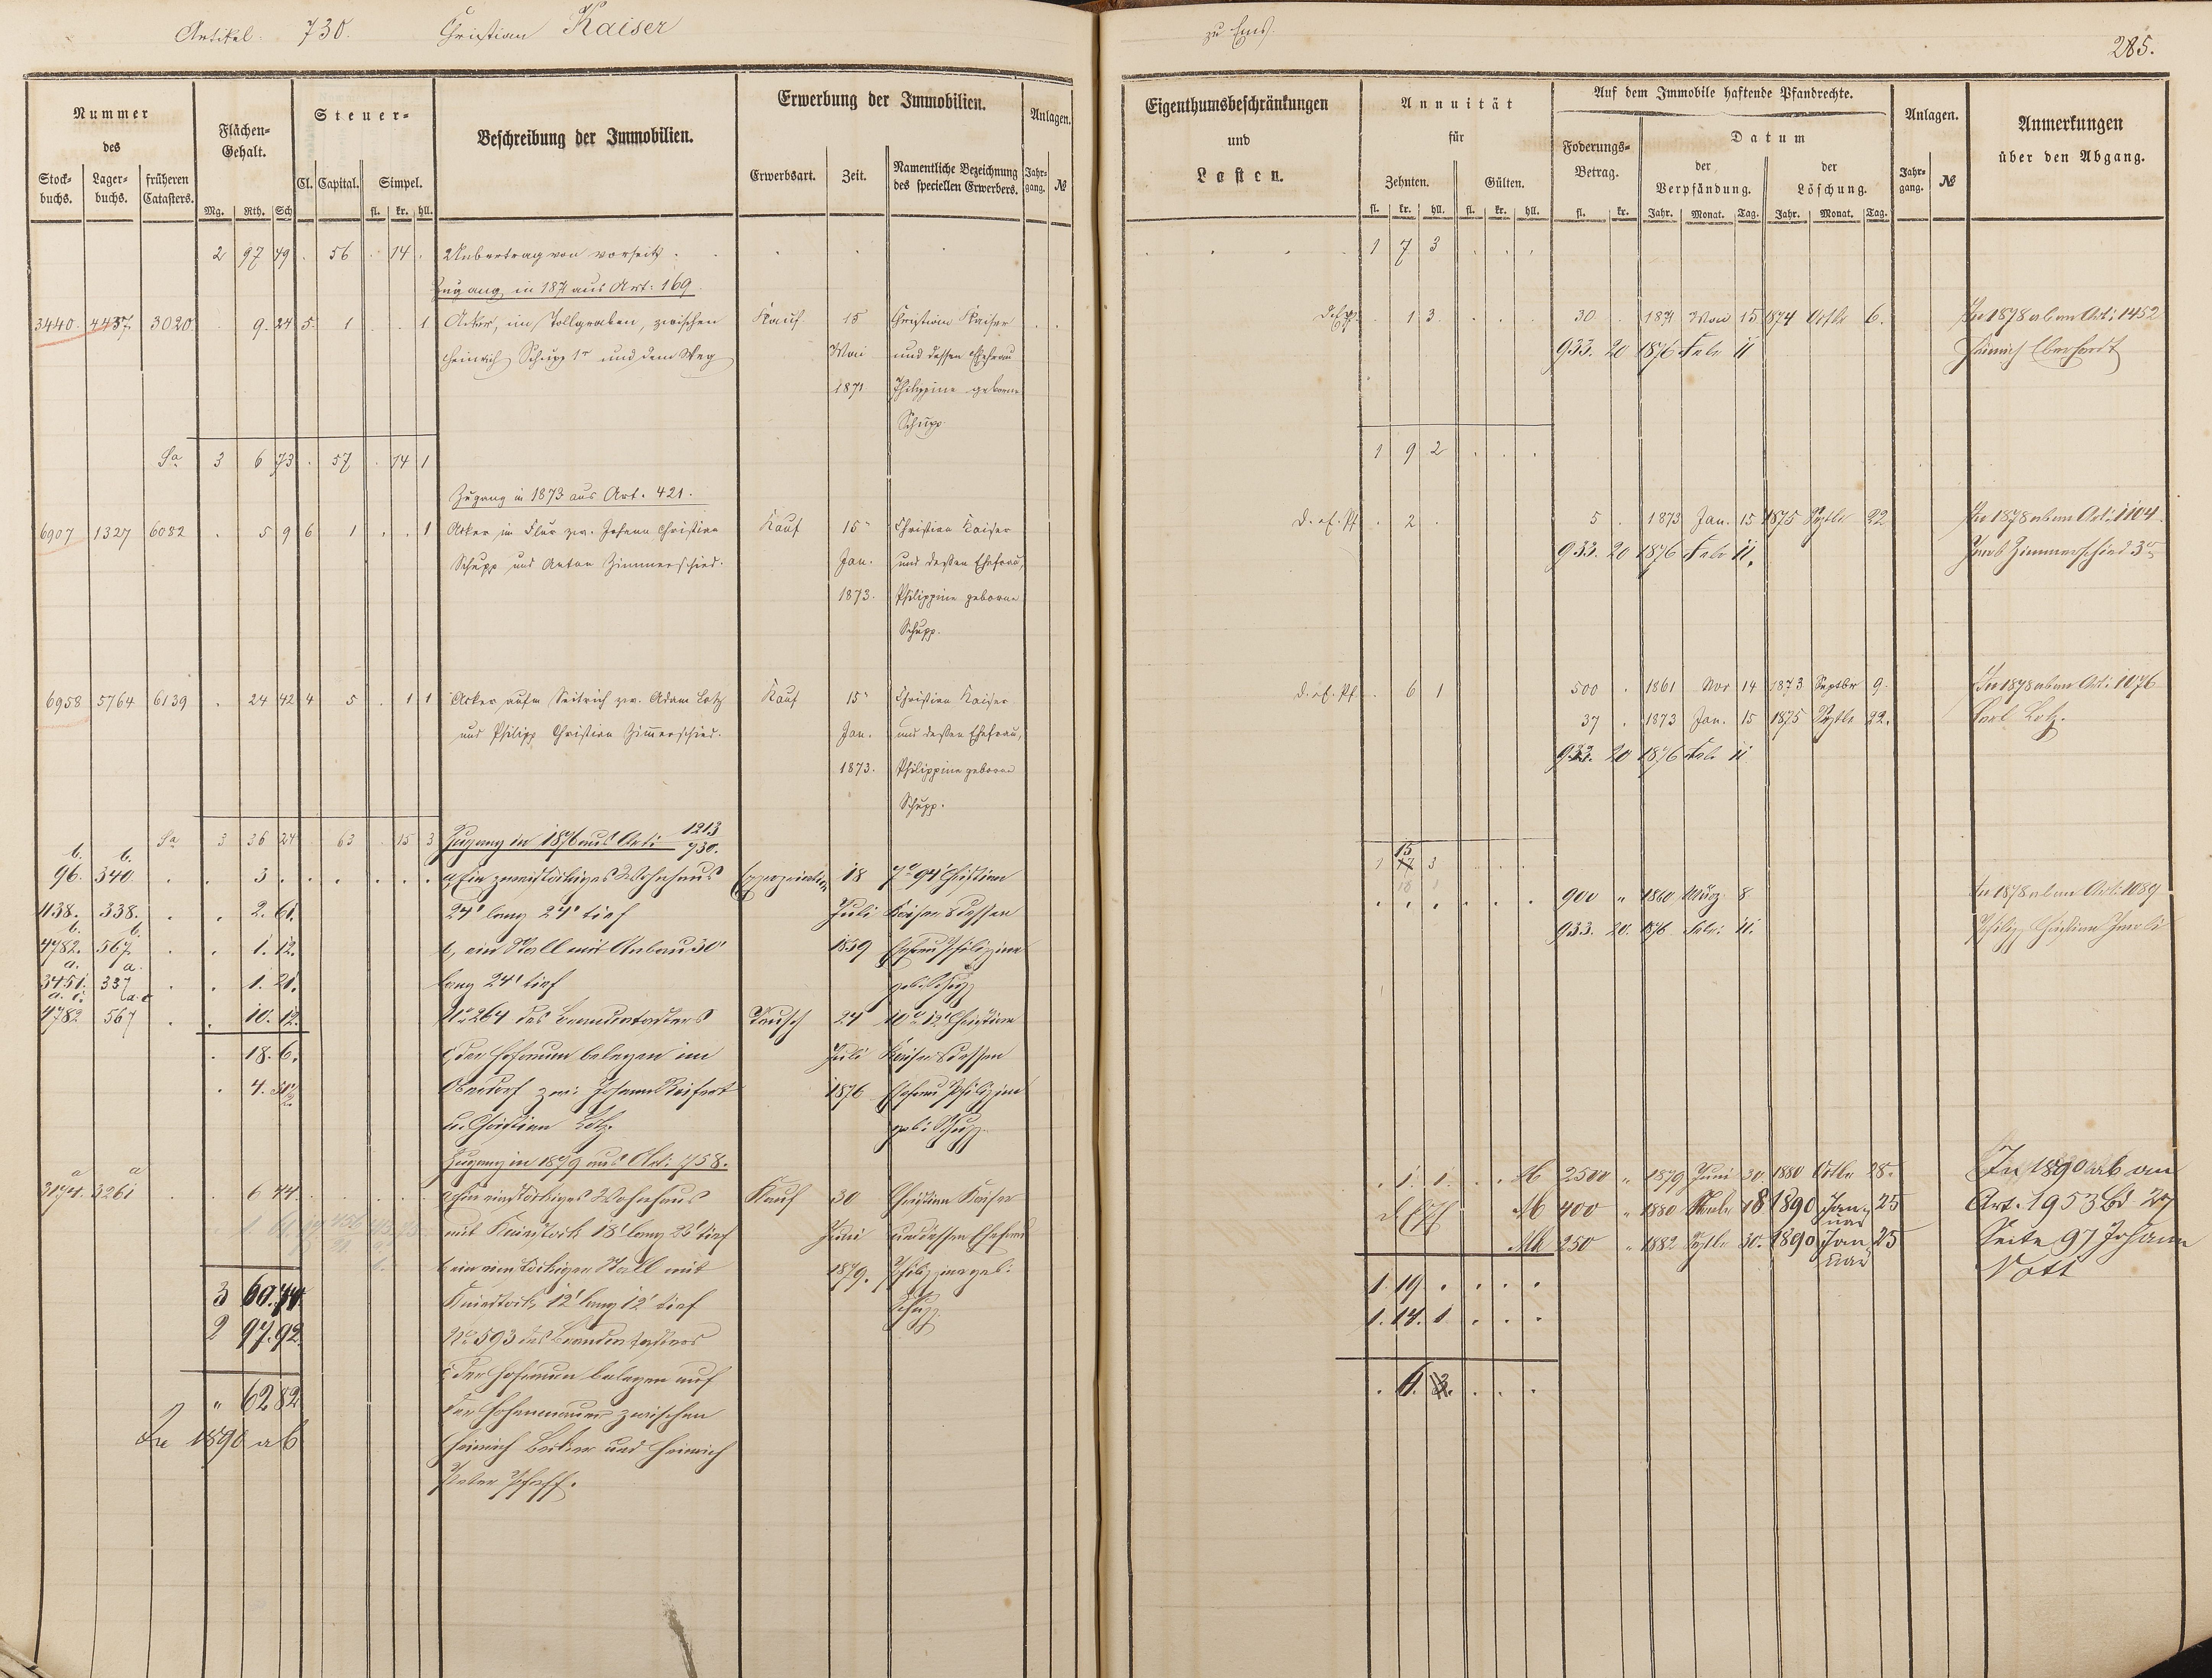 Artikel: 730. Christian Kaiser
Nummer
des
Stock-
buchs.
Lager-
buchs.
früheren
Catasters.
Flächen-
Gehalt.
Mg. Rth. Sch
Steuer-
Cl. Capital. Simpel.
fl. kr. hll.
Beschreibung der Immobilien.
Erwerbung der Immobilien.
Erwerbsart. Zeit.
Namentliche Bezeichnung
des speciellen Erwerbers.
Anlagen.
Jahr-
gang. №
2 97 49 . 56 . 14 . Uebertrag von vorseits .
Zugang in 1871 aus Art: 169.
3440. 4437. 3020 . 9. 24 5. 1 . . 1 Acker, im Tollgraben, zwischen Kauf 15 Christian Kaiser
Heinrich Schupp 1r und dem Weg Mai und dessen Ehefrau
1871 Philippine geborne
Schupp
Sa 3 6 73 . 57 . 14 1
Zugang in 1873 aus Art. 421.
6907 1327 6082 . 5 9 6 1 . . 1 Acker im Flur zw. Johann Christian Kauf 15 Christian Kaiser
Schupp und Anton Zimmerschied. Jan. und dessen Ehefrau,
1873. Philippine geborne
Schupp.
6958 5764 6139 . 24 42 4 5 . 1 1 Acker aufm Seitrich zw. Adam Lotz Kauf 15 Christian Kaiser
und Philipp Christian Zimmerschied. Jan. und dessen Ehefrau,
1873. Philippine geborne
Schupp.
Sa 3 36 24 . 63 . 15 3 Zugang in 1876 aus Art: 1213
730.
b. b.
96. 340 . . 3 . . . . . . a, Ein zweistöckiges Wohnhaus Expropriation 18 7° 94' Christian
1138. 338. . . 2. 61. 24' lang 24' tief Juli Kaiser dessen
b. b.
4782. 567 . . 1. 12. b, ein Stall mit Anbau 30' 1859 Ehefrau Philippine
a. a.
3451. 337 . . 1. 21. lang 24' tief geb: Schupp
4782 567 . . 10. 12. No 264 des Brandcatasters Tausch 24 10° 12' Christian
. 18. 6. c, der Hofraum belegen im Juli Kaiser dessen
. 4. Oberdorf zw: Johann Seifert 1876 Ehefrau Philippine
u. Christian Lotz. geb: Schupp.
Zugang in 1879 aus Art: 758.
a a
3174. 3261 . . 6 44 . . . . . a, Ein einstöckiges Wohnhaus Kauf 30 Christian Kaiser
mit Kniestock 18' lang 23' tief Juni und dessen Ehefrau
b, ein einstöckiger Stall mit 1879. Philippine geb:
3 60. 74. Kniestock, 12' lang 12' tief Schupp
2 97. 92. No 593 des Brandcatasters
c, der Hofraum belegen auf
" 62 82 der Hohenmauer zwischen
In 1890 ab Heinrich Becker und Heinrich
Peter Pfaff.
zu Ems. 285.
Eigenthumsbeschränkungen
und
Lasten.
Annuität
für
Zehnten. Gülten.
fl. kr. hll. fl. kr. hll.
Auf dem Immobile haftende Pfandrechte.
Foderungs-
Betrag.
fl. kr.
Datum
der
Verpfändung.
Jahr. Monat. Tag.
der
Löschung.
Jahr. Monat. Tag.
Anlagen.
Jahr-
gang. №
Anmerkungen
über den Abgang.
1 7 3 . . .
. 1 3 . . . 30 . 1871 Mai 15 1874 Octbr 6. In 1878 ab an Art: 1452
933. 20 1876 Febr 11 Heinrich Eberhardt
1 9 2 . . .
d. ef. Pf . 2 . 5 . 1873 Jan. 15 1875 Septbr 22 In 1878 ab an Art: 1104.
933. 20 1876 Febr 11. Zimmerschied 3r
d. ef. Pf . 6 1 500 . 1861 Nov 14 1873 Septbr 9. In 1878 ab an Art: 1076
37 . 1873 Jan. 15 1875 Septbr 22. Carl Lotz.
933. 20 1876 Febr 11
15
1 17 3 . . .
18 1
. . . . . . 900 " 1860 März 8 In 1878 ab an Art: 1089
933. 20. 1876 Febr: 11. Philipp Christian
. 1. 1. . . M 2500 " 1879 Juni 30. 1880 Octbr 28. In 1890 ab an
M 400 " 1880 18 1890 Januar 25 Art. 1953 Bd 27
M 250 " 1882 Septbr 30. 1890 Januar 25 Seite 97 Johann
1. 19 . . . . Vott
1. 14. 1 . . .
. 4. . . .